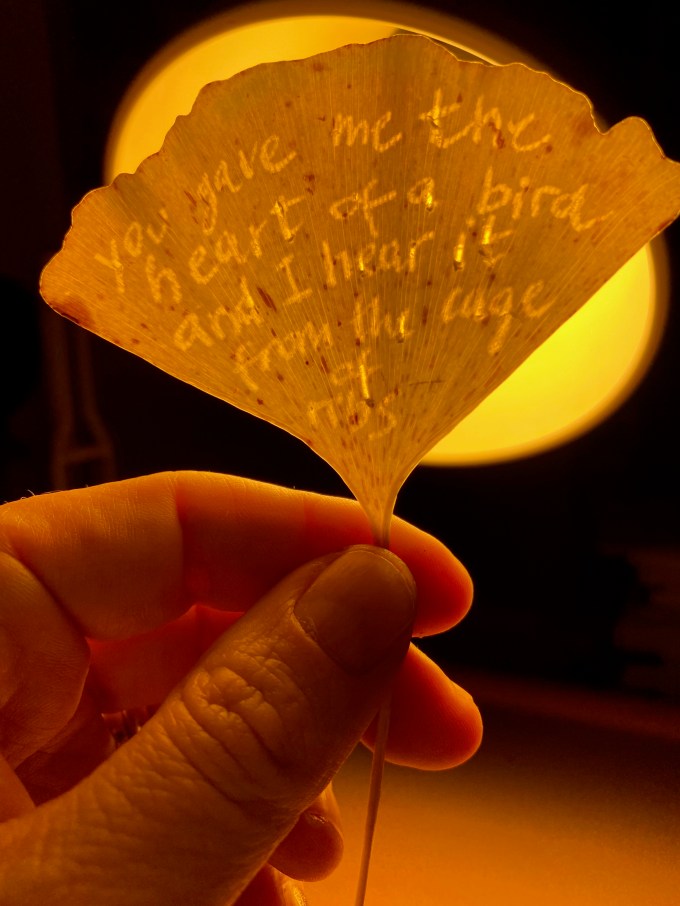 you gave me the
heart of a bird
and I hear it
from the cage
of
ribs